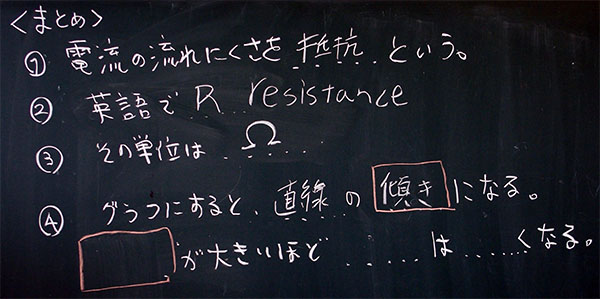 <まとめ>
① 電流の流れにくさを抵抗という。
② 英語で R resistance
③ その単位は Ω
④ グラフにすると、直線の傾きになる。
が大きいほど......は......くなる。